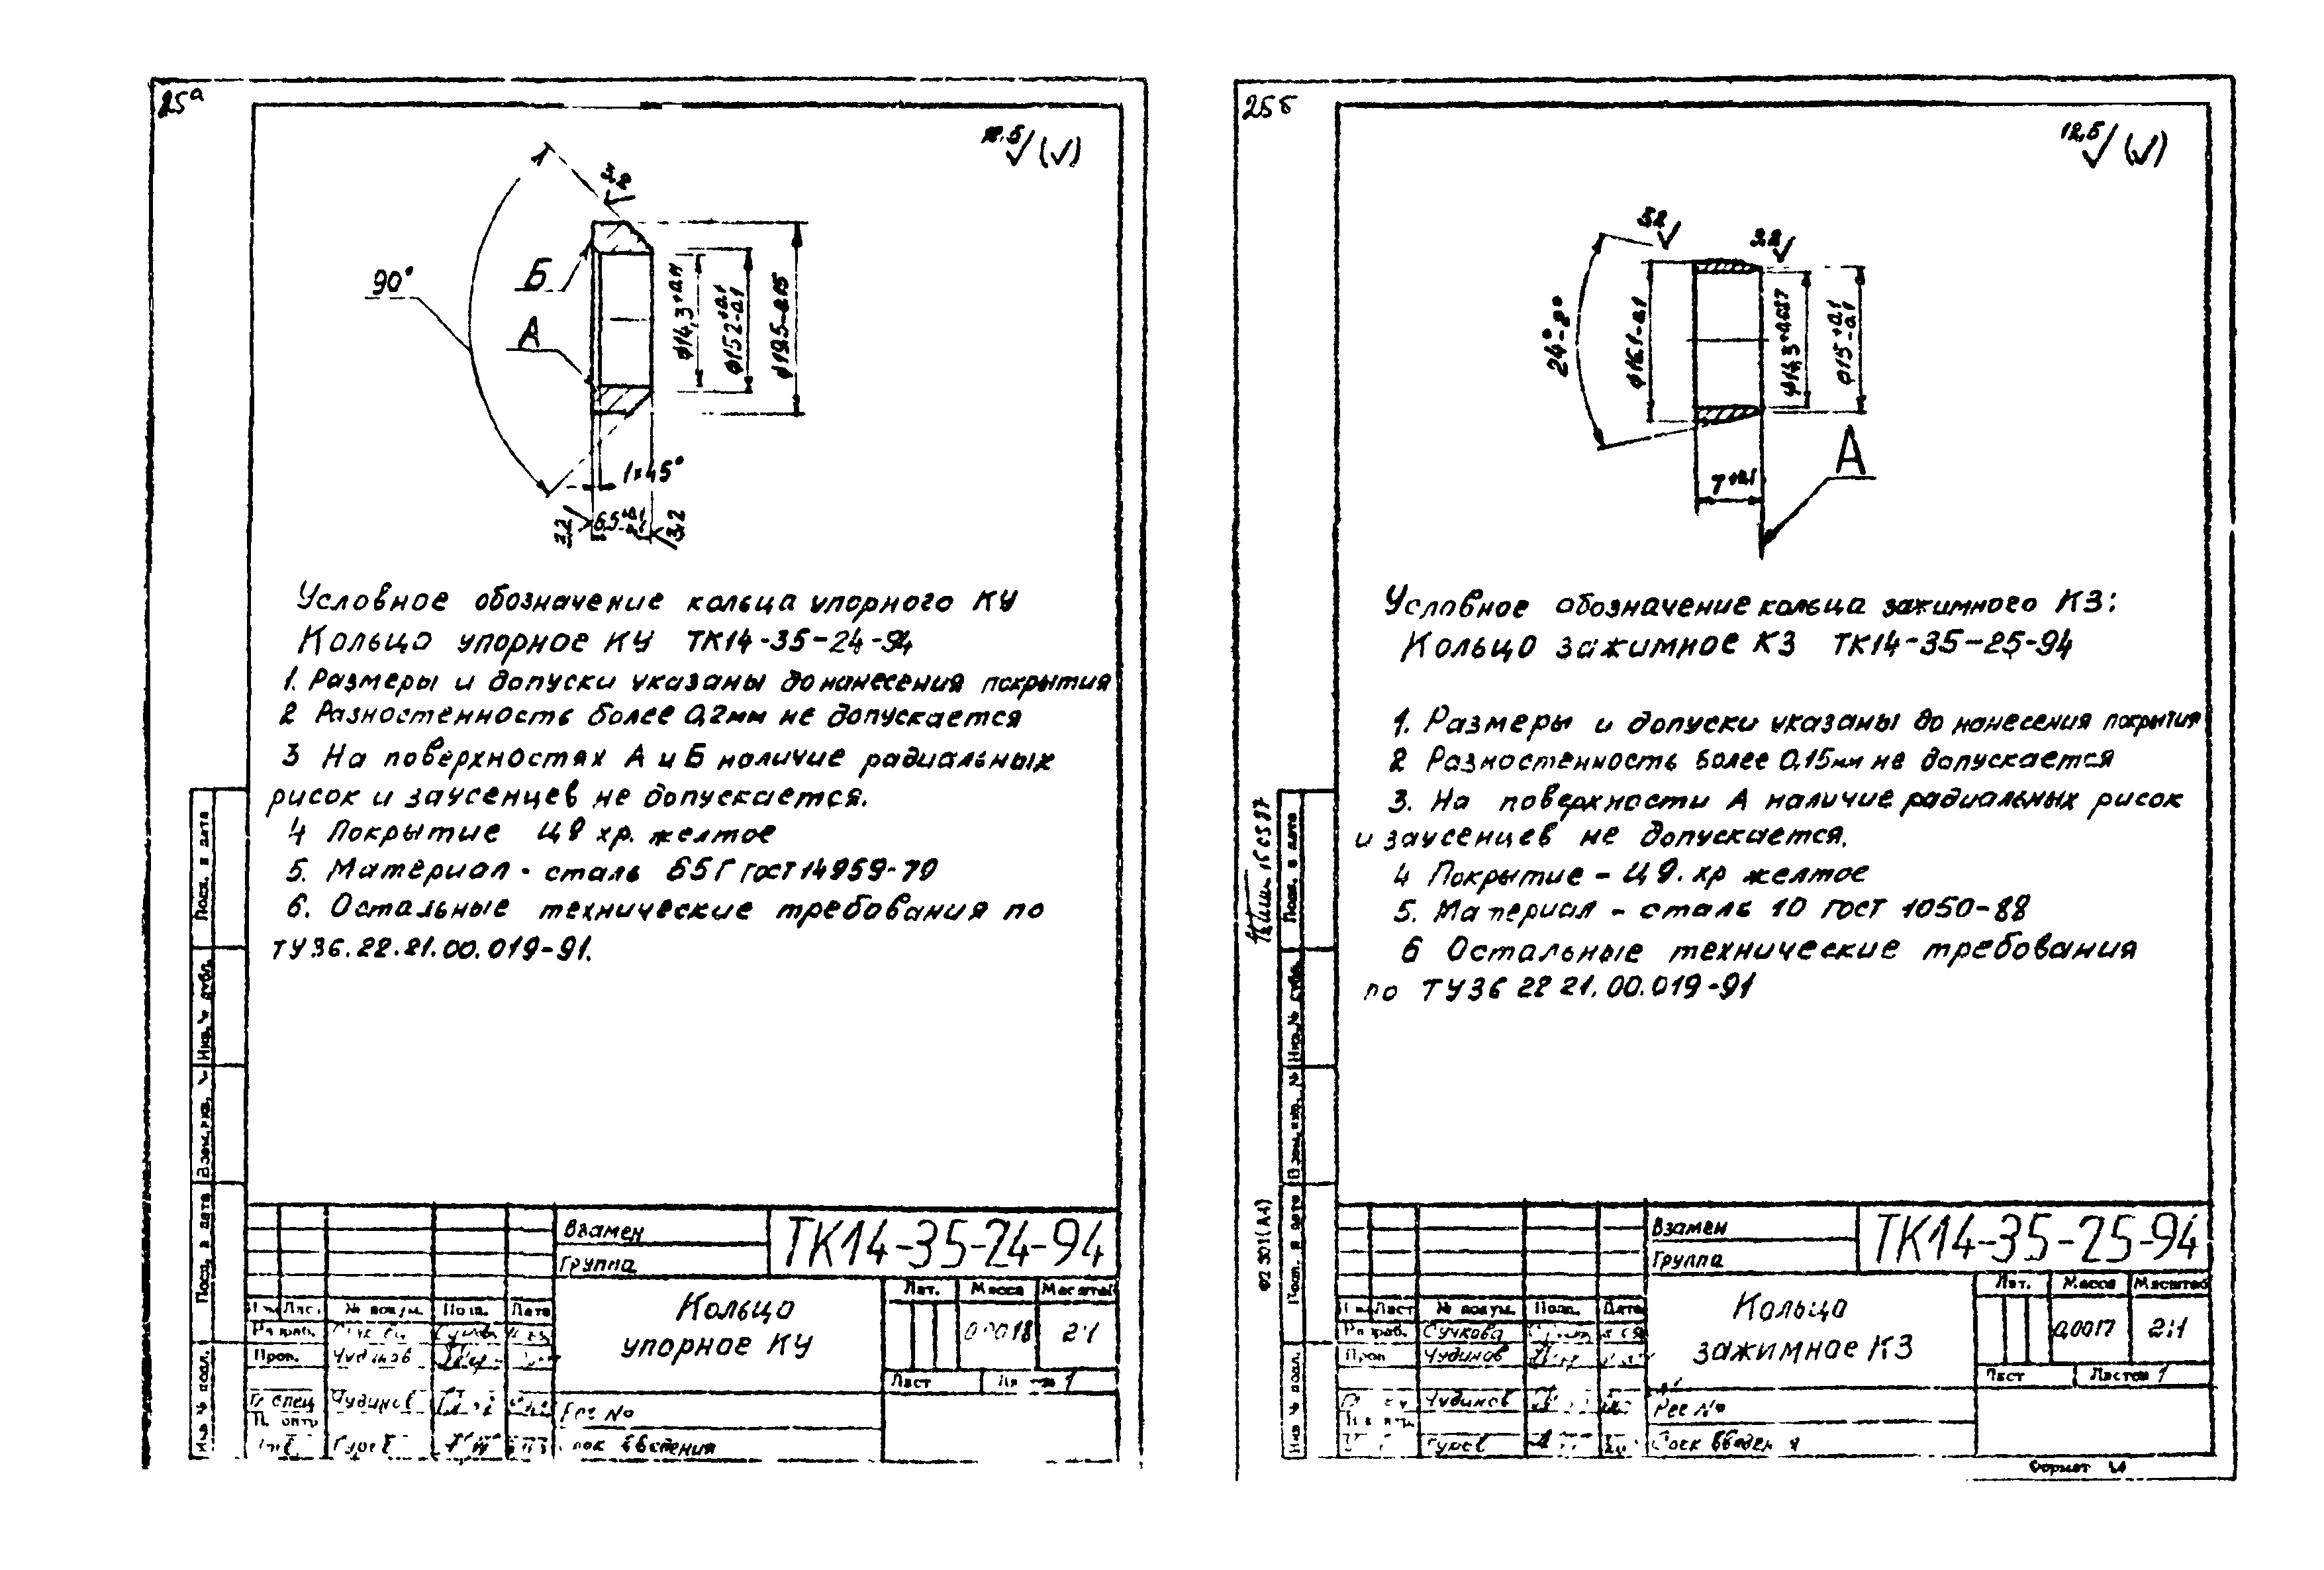 25а
12,5 (√)
3,2
90°
Б
А
φ14,3+0,11
φ15,2+0,1-0,1
φ19,5-0,15
1×45°
3,2
6,5+0,1-0,1
3,2
Условное обозначение кольца упорного КУ
Кольцо упорное КУ ТК14-35-24-94
1. Размеры и допуски указаны до нанесения покрытия
2 Разностенность более 0,2мм не допускается
3 На поверхностях А и Б наличие радиальных
рисок и заусенцев не допускается.
4 Покрытие Ц9 хр. желтое
5. Материал - сталь 65Г ГОСТ 14959-79
6. Остальные технические требования по
ТУ36.22.21.00.019-91.
Подп. и дата
Инв. № дубл.
Взам. инв. №
Подп. и дата
Инв № подл.
Взамен
Группа
ТК14-35-24-94
Лист № докум. Подп. Дата
Разраб.
Пров. Чудинов
Гл спец Чудинов
Гурев
Кольцо
упорное КУ
Лит. Масса Масштаб
0,0018 2:1
Лист 1
Рег №
Срок введения
25б
12,5 (√)
3,2
3,2
24°-2°
φ16,1-0,1
φ14,3+0,027
φ15+0,1-0,1
7+0,1
А
Условное обозначение кольца зажимного КЗ:
Кольцо зажимное КЗ ТК14-35-25-94
1. Размеры и допуски указаны до нанесения покрытия
2 Разностенность более 0,15мм не допускается
3. На поверхности А наличие радиальных рисок
и заусенцев не допускается.
4 Покрытие - Ц9. хр желтое
5. Материал - сталь 10 ГОСТ 1050-88
6 Остальные технические требования
по ТУ36 22 21.00.019-91
Подп. и дата
Инв. № дубл.
Взам. инв. №
Подп. и дата
Инв № подл.
Взамен
Группа
ТК14-35-25-94
Лист № докум. Подп. Дата
Разраб. Сучкова
Пров Чудинов
Чудинов
Гурев
Кольцо
зажимное КЗ
Лит. Масса Масштаб
0,0017 2:1
Лист Листов 1
Рег №
Срок введения
Формат А4